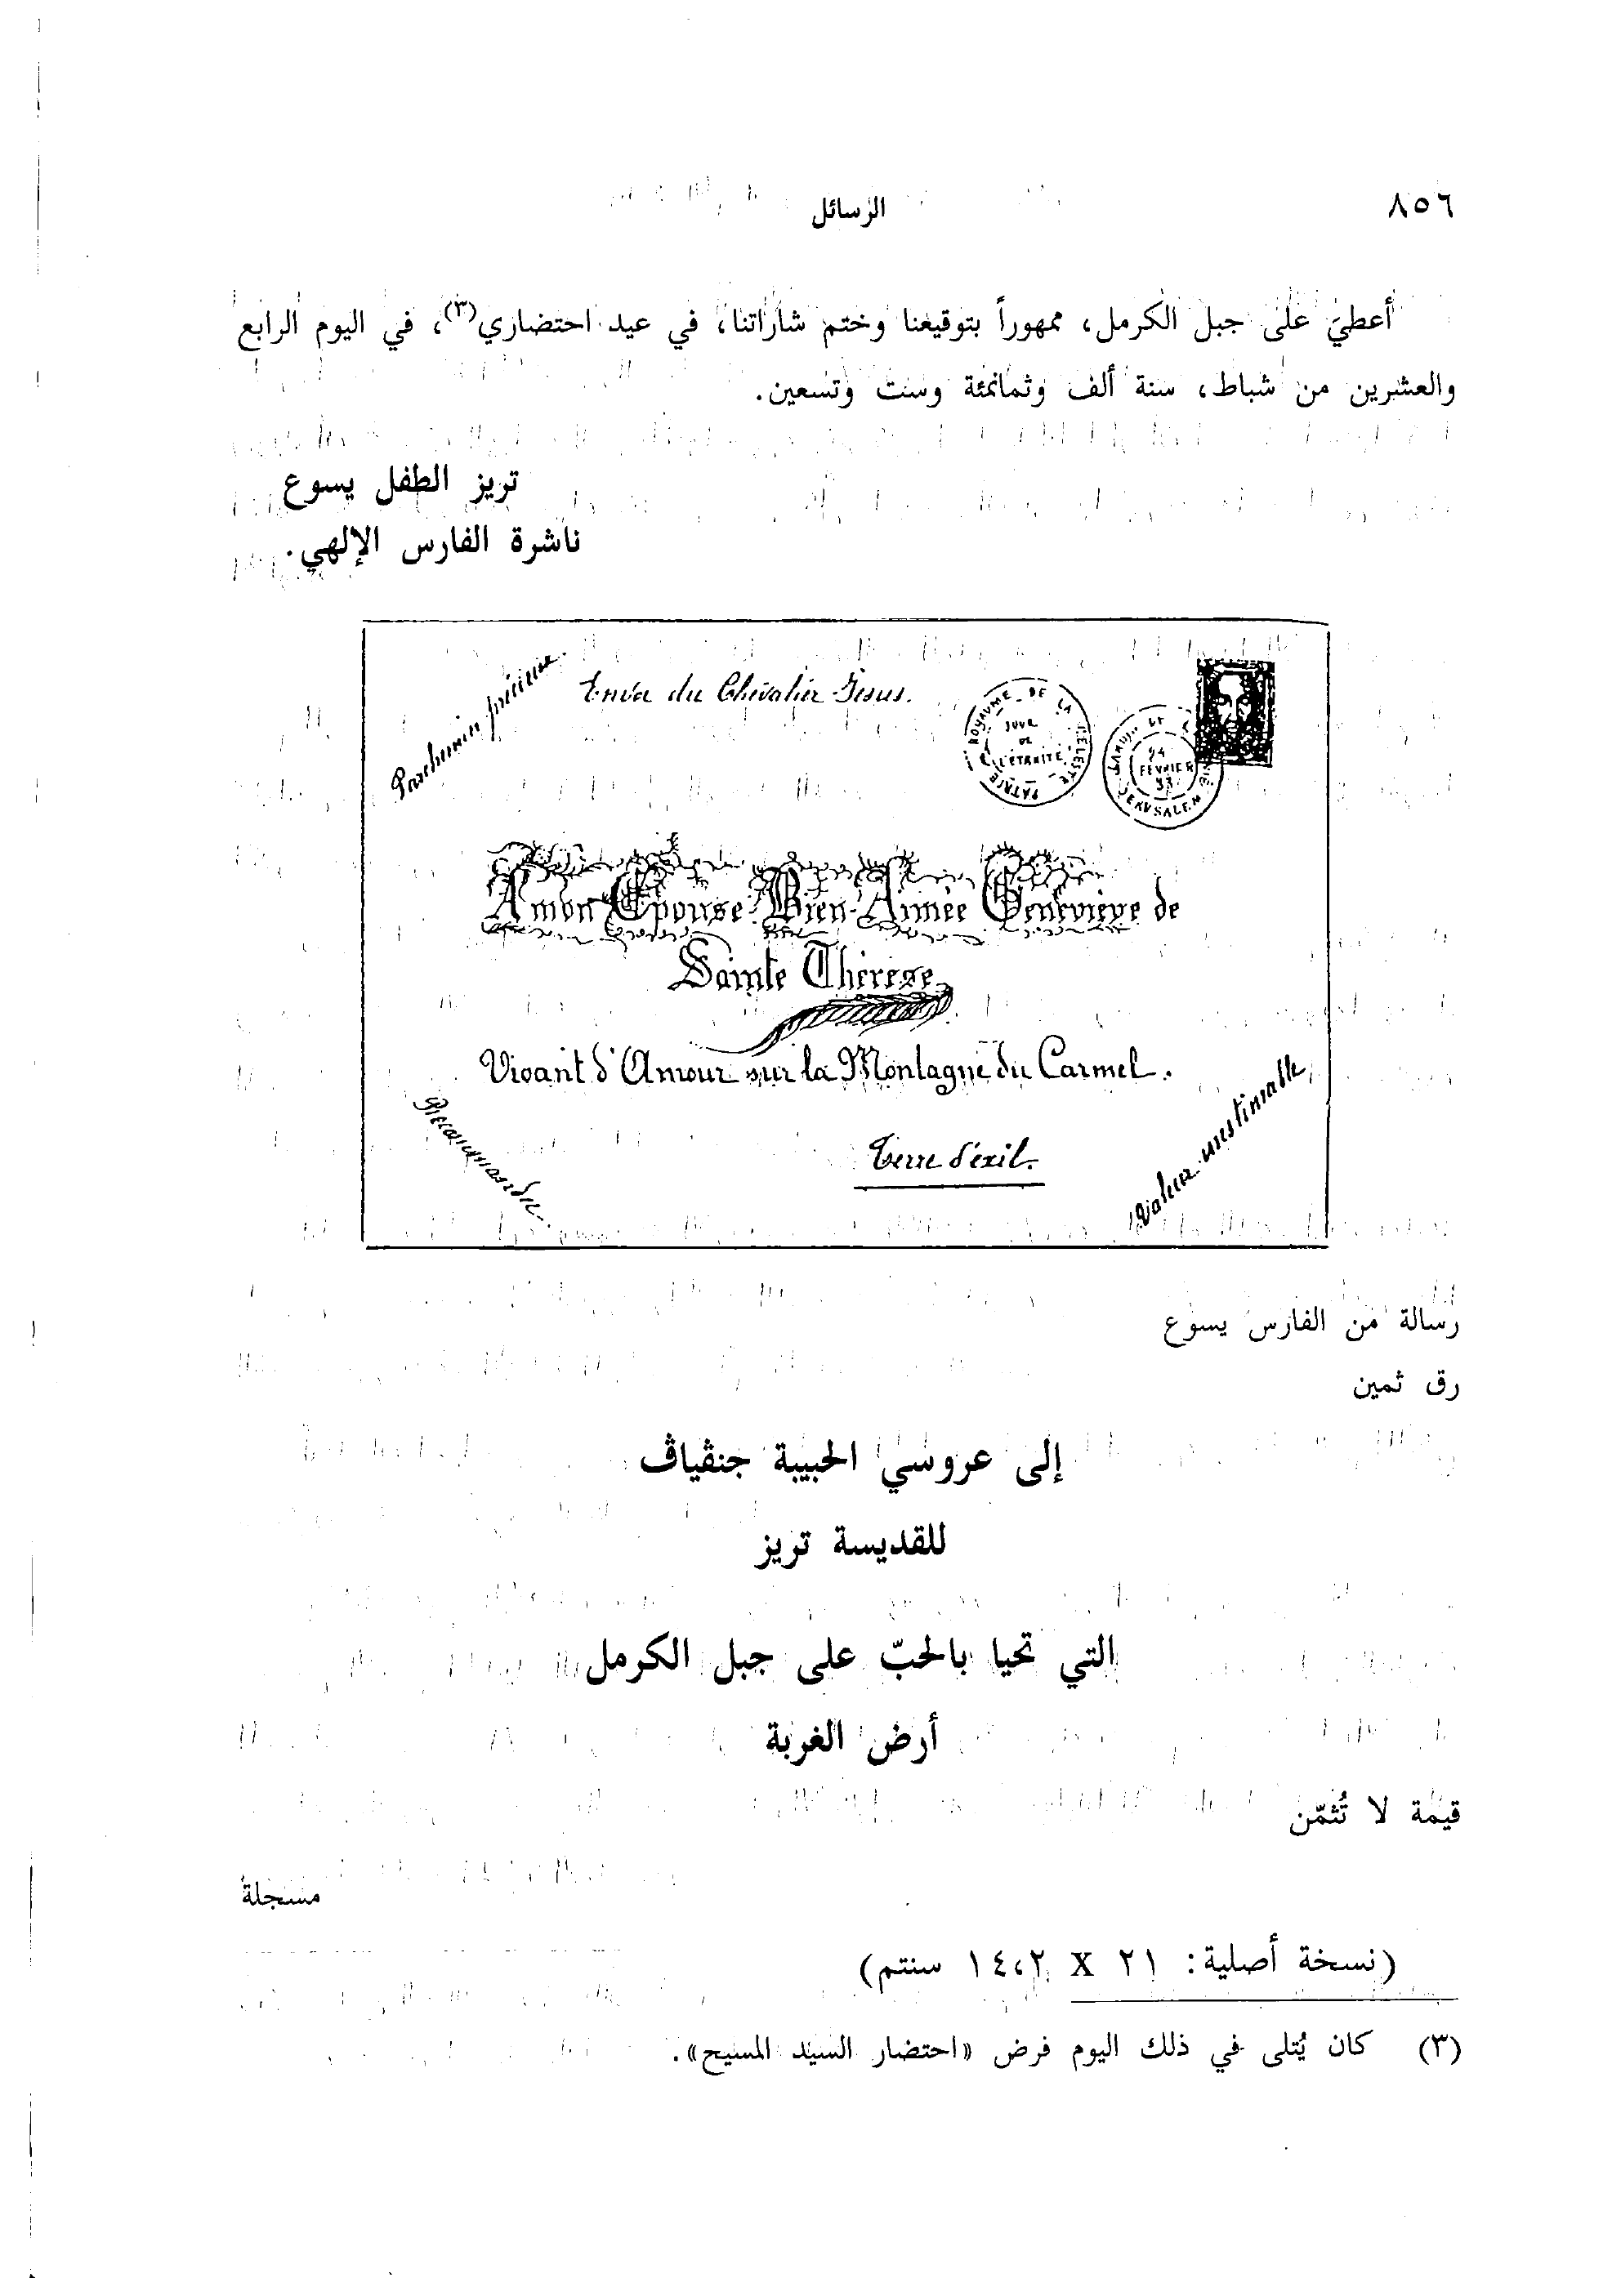 ٨٥٦
الرسائل
أعطيَ على جبل الكرمل، ممهوراً بتوقيعنا وختم شاراتنا، في عيد احتضاري(٣)، في اليوم الرابع
والعشرين من شباط، سنة ألف وثمانمئة وست وتسعين.
تريز الطفل يسوع
ناشرة الفارس الإلهي.
Parchemin précieux.
Envoi du Chevalier Jésus.
ROYAUME DE LA CELESTE PATRIE
JOUR
DE
L'ETRNITÉ
24
FÉVRIER
JERUSALEM
A mon Epouse Bien-Aimée Geneviève de
Sainte Thérèse
Vivant d'Amour sur la Montagne du Carmel.
Recommandée
Terre d'exil.
Valeur inestimable
رسالة من الفارس يسوع
رق ثمين
إلى عروسي الحبيبة جنڤياڤ
للقديسة تريز
التي تحيا بالحبّ على جبل الكرمل
أرض الغربة
قيمة لا تُثمّن
مسجلة
(نسخة أصلية: ٢١ X ١٤،٢ سنتم)
(٣) كان يُتلى في ذلك اليوم فرض «احتضار السيّد المسيح».